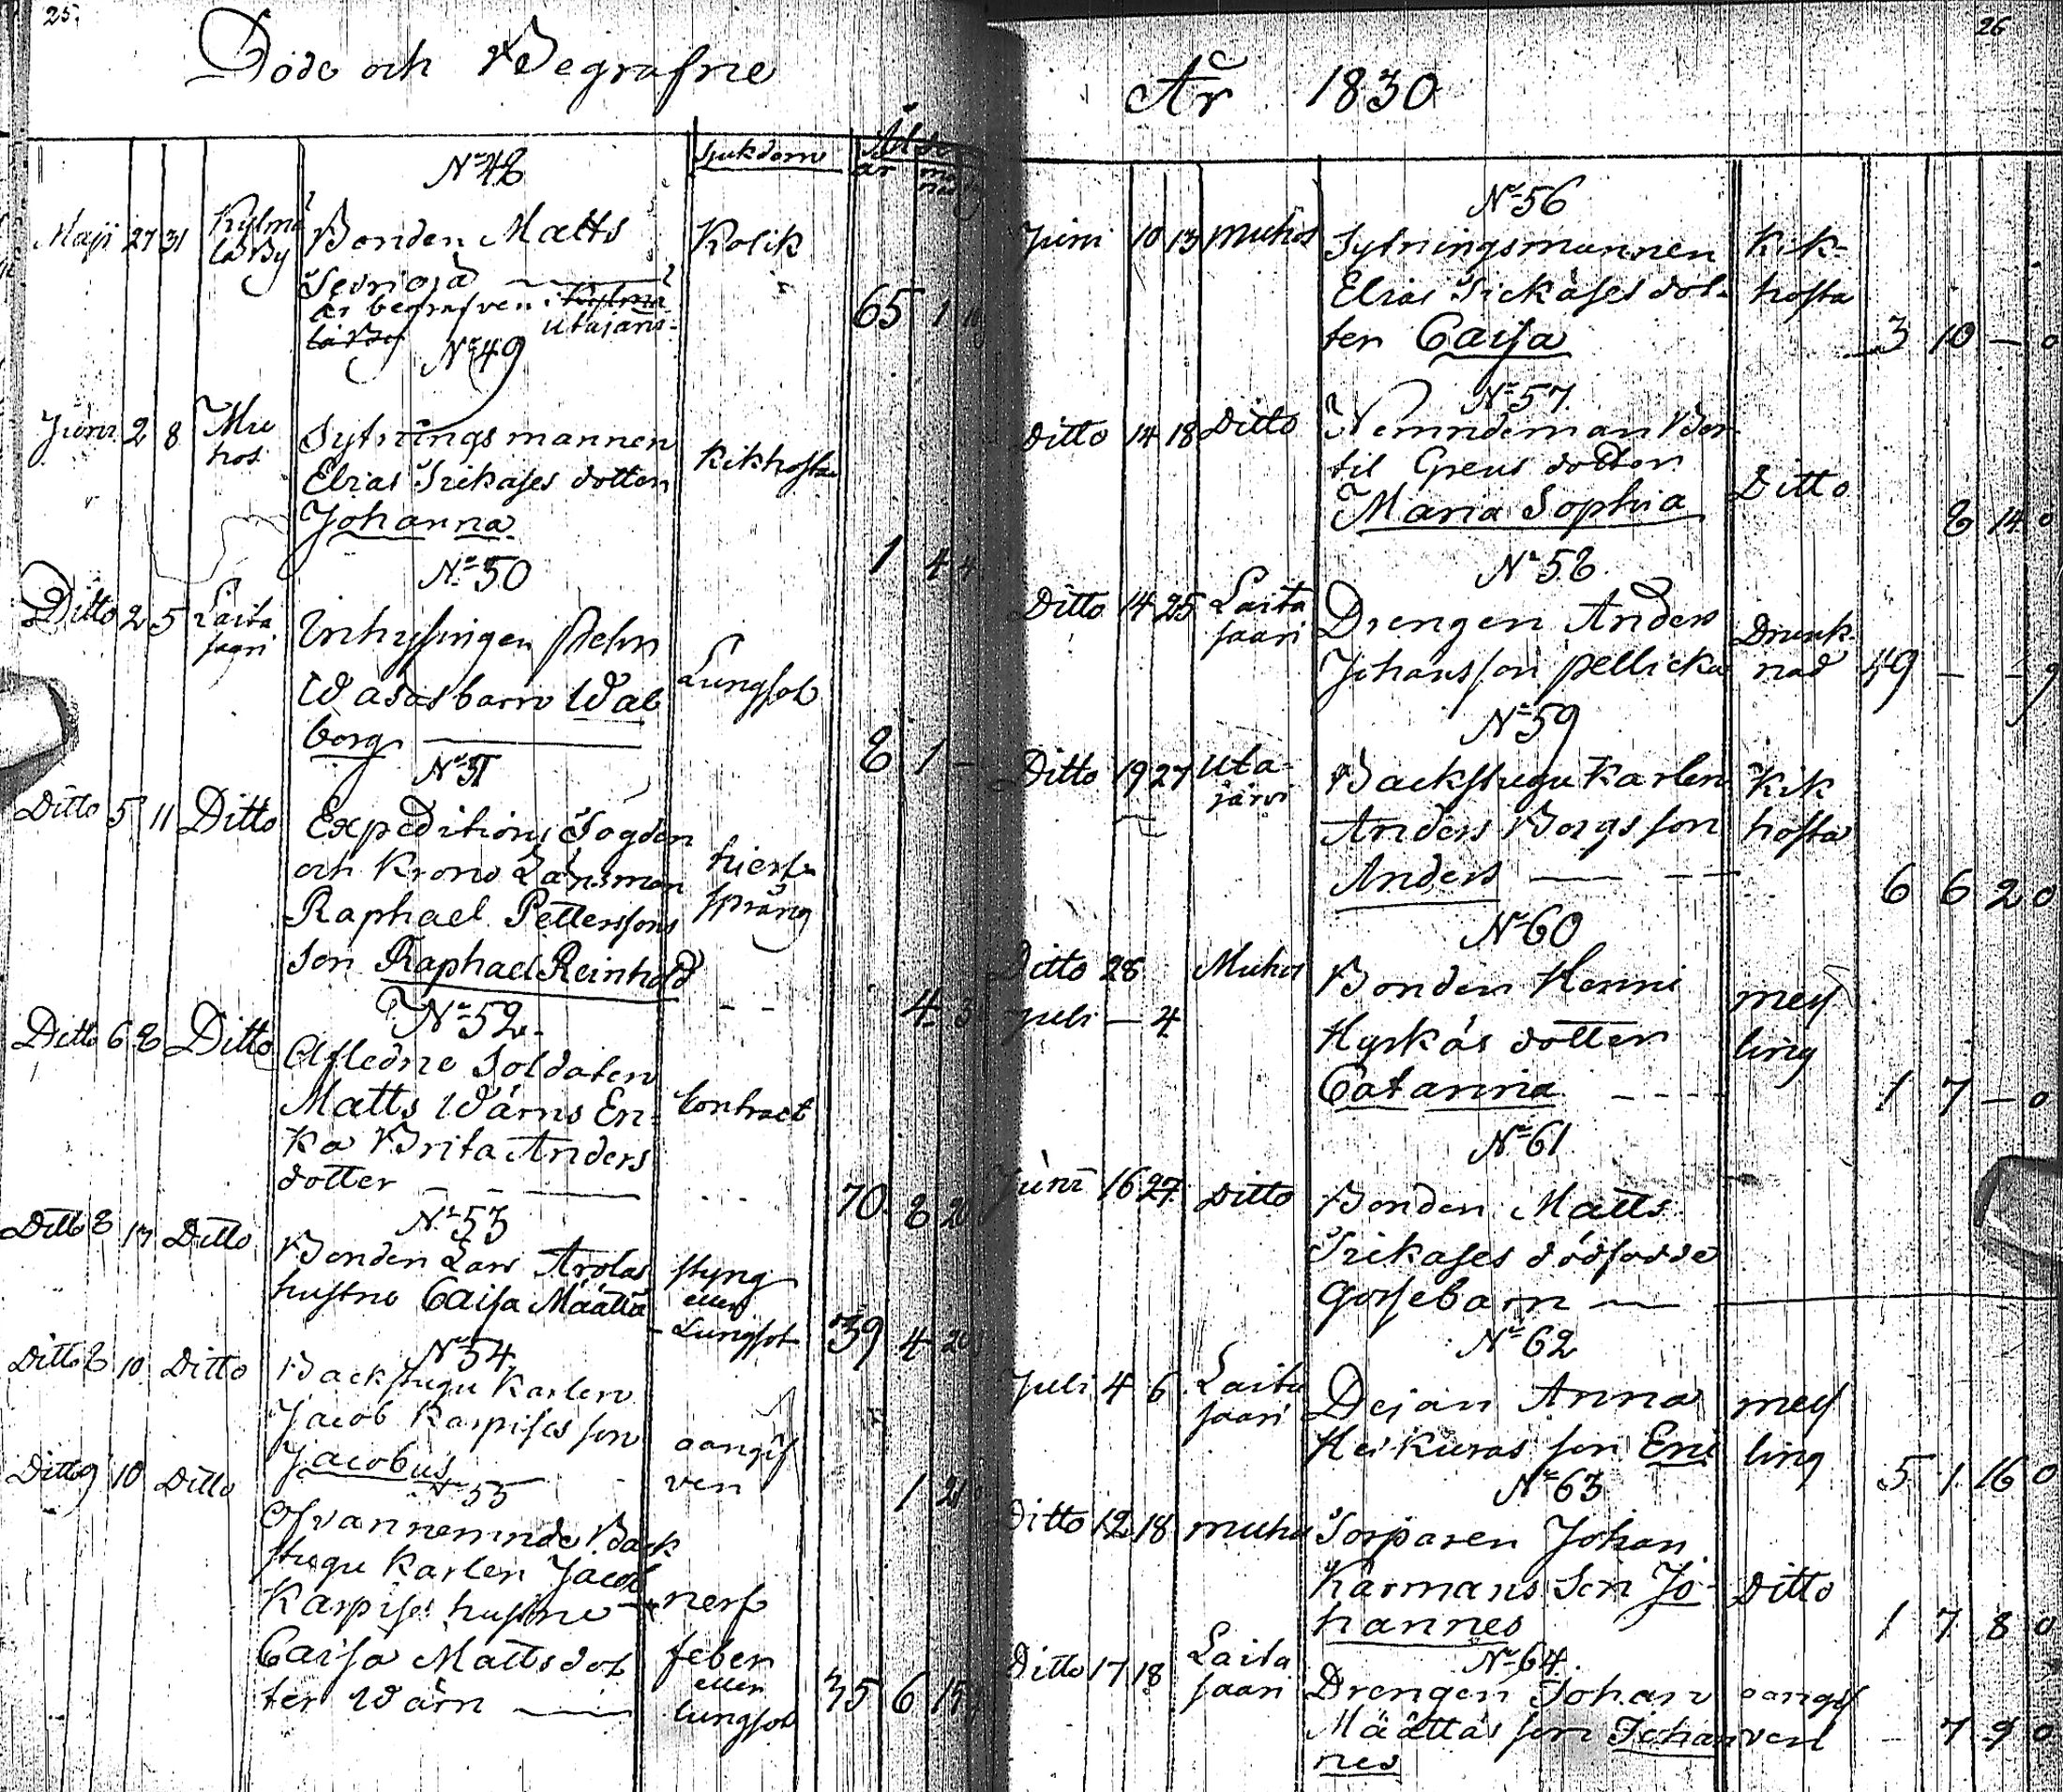 25.
Döde och Begrafne
Sjukdom
År
No 48
Maji 27 31 Kylmä
lä By
Bonden Matts
är begrafven i Kylmä
lä By Utajärvi
Kolik
65 1
No 49
Juni 2 8 Mu
hos
Sytningsmannen
Elias Siikases dotter
Johanna
Kikhosta
1 4 4
No 50
Ditto 2 5 Laita
saari
Inhysingen Pehr
Wadas barn Wal
borg
Lungsot
8 1 —
No 51
Ditto 5 11 Ditto
Expeditions Fogden
och Krono Länsman
Raphael Petterssons
son Raphael Reinhold
hiert
språng
4 3
No 52
Ditto 6 8 Ditto
Afledne Soldaten
Matts Wärns En-
ka Brita Anders
dotter
Contract
70 8 20
No 53
Ditto 8 13 Ditto
Bonden Lars Arolas
hustru Caisa Määttä
styng
eller
Lungsot
39 4 20
No 54
Ditto 8 10 Ditto
Backstugu Karlen
Jacob Karpises son
Jacobus
oangif
ven
1 2
No 55
Ditto 9 10 Ditto
Ofvannemnde Back-
stugu Karlen Jacob
Karpises hustru
Caisa Mattsdot
ter Wärn
nerf
feber
eller
lungsot
35 6 15
26
År 1830
No 56
Juni 10 13 Muhos
Sytningsmannen
Elias Sickäses dot-
ter Caisa
Kik-
hosta
3 10 — 0
No 57
Ditto 14 18 Ditto
Nemndeman Ber
til Greus dotter
Maria Sophia
Ditto
8 14 0
No 58
Ditto 14 25 Laita
saari
Drengen Anders
Johansson Pellicka
Drunk-
nad
49 — — 9
No 59
Ditto 19 27 Uta-
järvi
Backstugu Karlen
Anders Borgs son
Anders
Kik
hosta
6 6 20
No 60
Ditto 28 Muhos
Juli — 4
Bonden Henric
Hyrkäs dotter
Catarina
mess
ling
1 7 — 0
No 61
Juni 16 27 Ditto
Bonden Matts
Siikases dödfödde
Gossebarn
No 62
Juli 4 6 Laita
saari
Dejan Anna
Heikuras son Eric
mess
ling
5 1 16 0
No 63
Ditto 12 18 Muhos
Torparen Johan
Karmans Son Jo-
hannes
Ditto
1 7 8 0
No 64
Ditto 17 18 Laita
saari
Drengen Johan
Määttäs son Johan
nes
oangif
ven
7 9 0